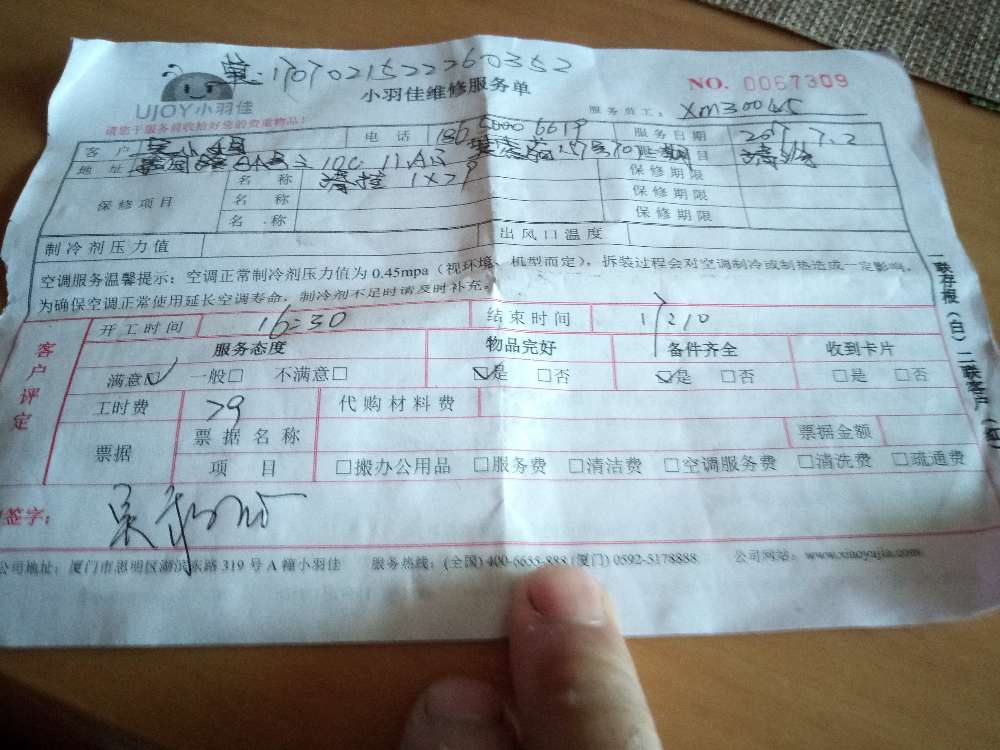 单:1707021522260352
UJOY小羽佳
小羽佳维修服务单
NO. 0067309
请您于服务前收拾好您的贵重物品!
服务员工: XM30045
客户 电话 服务日期 2017.7.2
地址 项目 清洗
保修项目 名称 清挂 1×79 保修期限
名称 保修期限
名称 保修期限
制冷剂压力值 出风口温度
空调服务温馨提示:空调正常制冷剂压力值为 0.45mpa(视环境、机型而定),拆装过程会对空调制冷或制热造成一定影响,
为确保空调正常使用延长空调寿命,制冷剂不足时请及时补充。
客户评定
开工时间 16:30 结束时间 17:10
服务态度 物品完好 备件齐全 收到卡片
满意☑ 一般□ 不满意□ ☑是 □否 ☑是 □否 □是 □否
工时费 79 代购材料费
票据 票据名称 票据金额
项目 □搬办公用品 □服务费 □清洁费 □空调服务费 □清洗费 □疏通费
签字:
公司地址:厦门市思明区湖滨东路 319 号 A 幢小羽佳 服务热线:(全国) 400-6655-888 (厦门) 0592-5178888 公司网站:www.xiaoyujia.com
一联存根(白)二联客户(红)